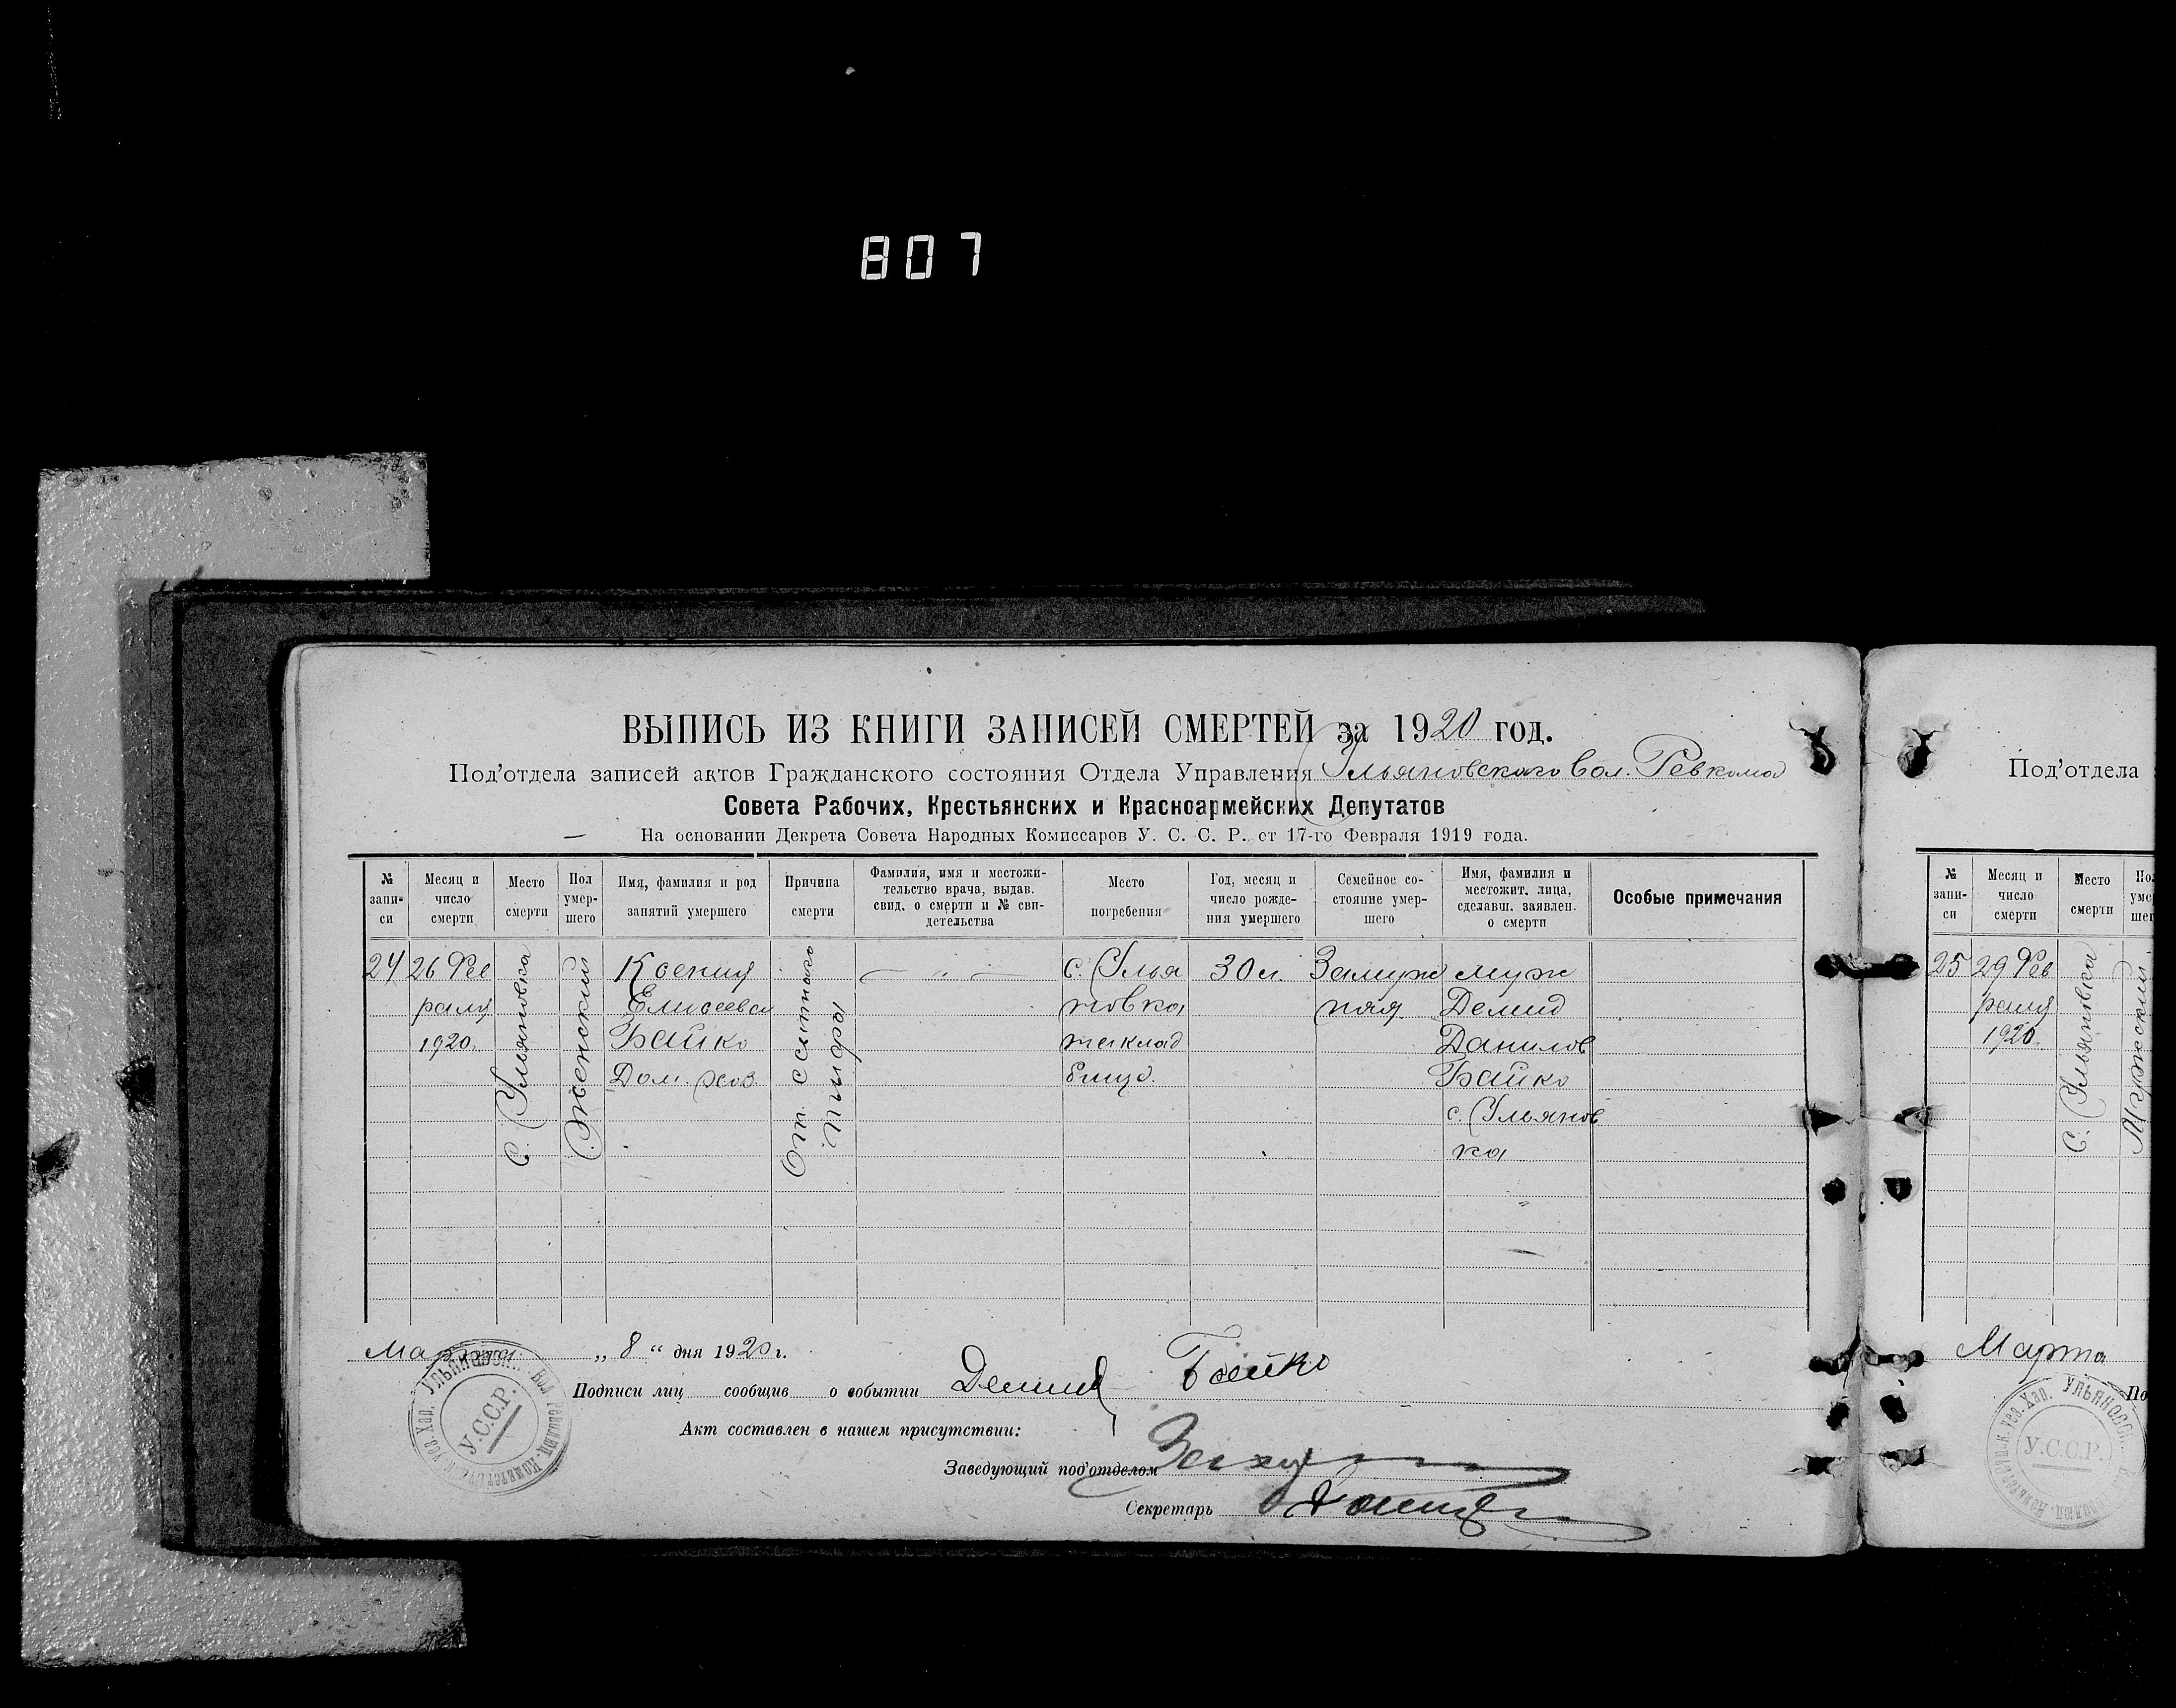 807
ВЫПИСЬ ИЗ КНИГИ ЗАПИСЕЙ СМЕРТЕЙ за 1920 год.
Под'отдела записей актов Гражданского состояния Отдела Управления Ульяновского Вол. Ревкома
Совета Рабочих, Крестьянских и Красноармейских Депутатов
На основании Декрета Совета Народных Комиссаров У. С. С. Р. от 17-го Февраля 1919 года.
№ запи-си
Месяц и число смерти
Место смерти
Пол умер-шего
Имя, фамилия и род занятий умершего
Причина смерти
Фамилия, имя и местожи-тельство врача, выдав. свид. о смерти и № сви-детельства
Место погребения
Год, месяц и число рожде-ния умершего
Семейное со-стояние умер-шего
Имя, фамилия и местожит. лица, сделавш. заявлен. о смерти
Особые примечания
24
26 Фев
раля
1920
с. Ульяновка
Женский
Ксения
Елисеева
Байко
Дом. хоз.
От сыпного
тифа
— „ —
с. Улья
новка
на клад
бище.
30 л.
Замуж
няя
муж
Демид
Данилов
Байко
с. Ульянов
ка
Марта „ 8 “ дня 1920 г.
Подписи лиц сообщив о событии Демид Байко
Акт составлен в нашем присутствии:
Заведующий под'отделом
Секретарь
У.С.С.Р.
Под'отдела
№ запи-си
Месяц и число смерти
Место смерти
25
29 Фев
раля
1920
с. Ульяновка
Мужской
Марта
У.С.С.Р.